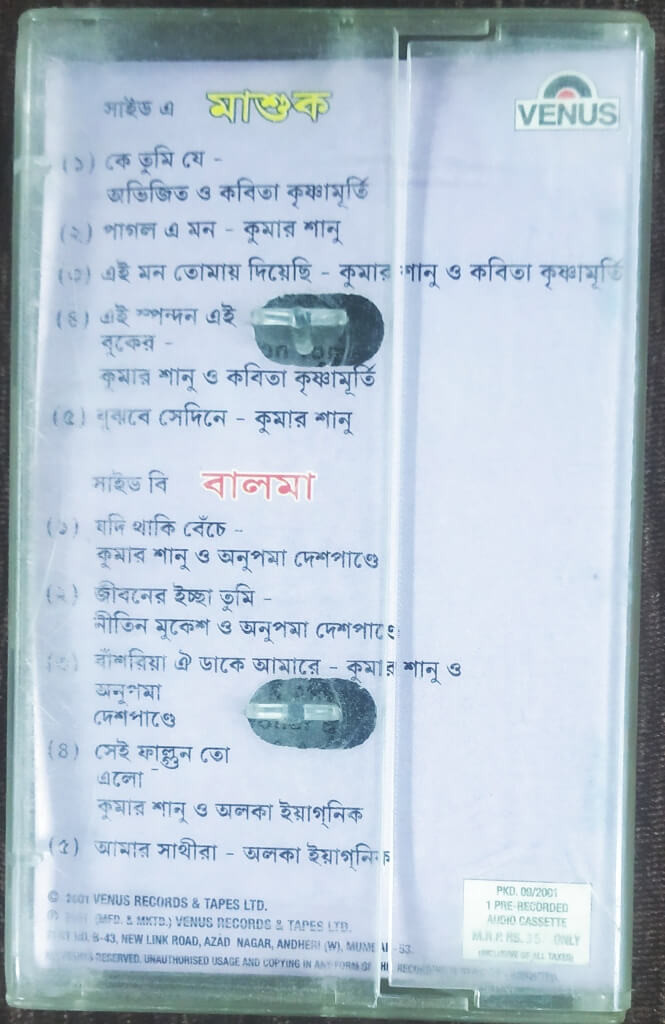 সাইড এ মাশুক
VENUS
(১) কে তুমি যে -
অভিজিত ও কবিতা কৃষ্ণামূর্তি
(২) পাগল এ মন - কুমার শানু
(৩) এই মন তোমায় দিয়েছি - কুমার শানু ও কবিতা কৃষ্ণামূর্তি
(৪) এই স্পন্দন এই
বুকের -
কুমার শানু ও কবিতা কৃষ্ণামূর্তি
(৫) বুঝবে সেদিনে - কুমার শানু
সাইড বি বালমা
(১) যদি থাকি বেঁচে -
কুমার শানু ও অনুপমা দেশপাণ্ডে
(২) জীবনের ইচ্ছা তুমি -
নীতিন মুকেশ ও অনুপমা দেশপাণ্ডে
(৩) বাঁশরিয়া ঐ ডাকে আমারে - কুমার শানু ও
অনুপমা
দেশপাণ্ডে
(৪) সেই ফাল্গুন তো
এলো -
কুমার শানু ও অলকা ইয়াগ্‌নিক
(৫) আমার সাথীরা - অলকা ইয়াগ্‌নিক
© 2001 VENUS RECORDS & TAPES LTD.
(P) 2001 (MFD. & MKTD.) VENUS RECORDS & TAPES LTD.
PLOT NO. B-43, NEW LINK ROAD, AZAD NAGAR, ANDHERI (W), MUMBAI-53.
ALL RIGHTS RESERVED. UNAUTHORISED USAGE AND COPYING IN ANY FORM OF THIS
PKD. 09/2001
1 PRE-RECORDED
AUDIO CASSETTE
M.R.P. RS. 35 ONLY
(INCLUSIVE OF ALL TAXES)